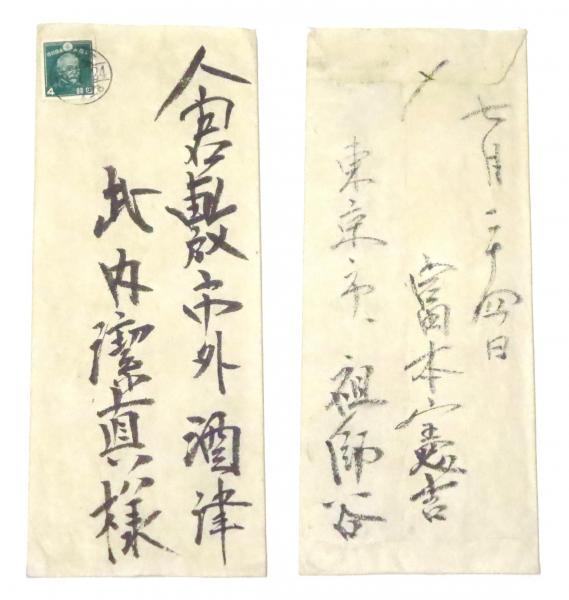 倉敷市外酒津
武内潔真様
4
24
七月二十四日
富本憲吉
東京市、祖師谷
〆